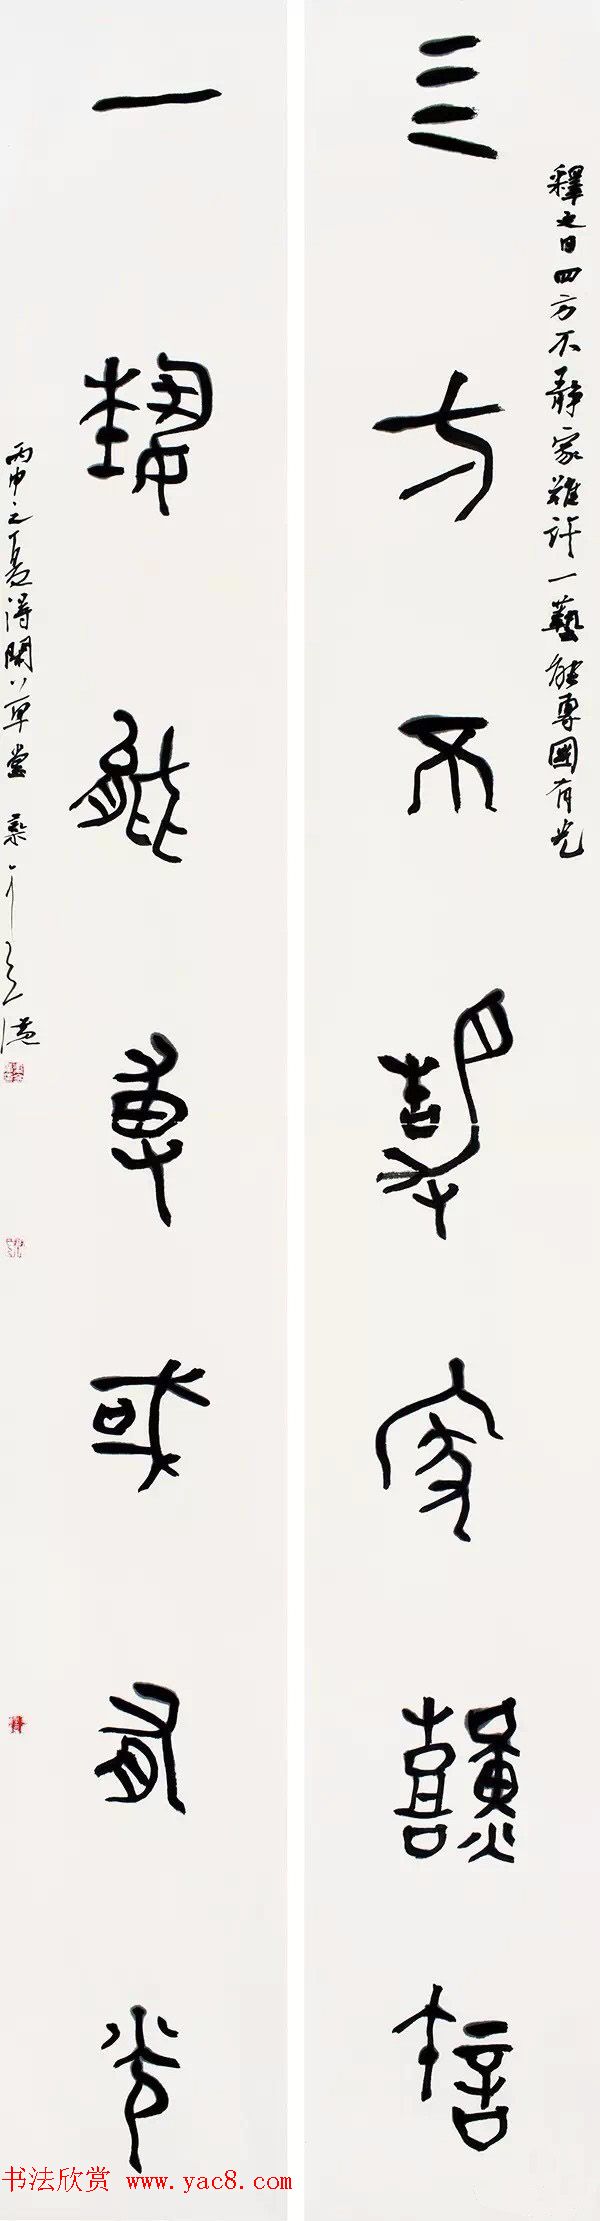 四方不静家难许
釋文曰四方不靜家難許一藝能專國有光
一藝能專國有光
丙申之夏得閒八草堂
书法欣赏 www.yac8.com